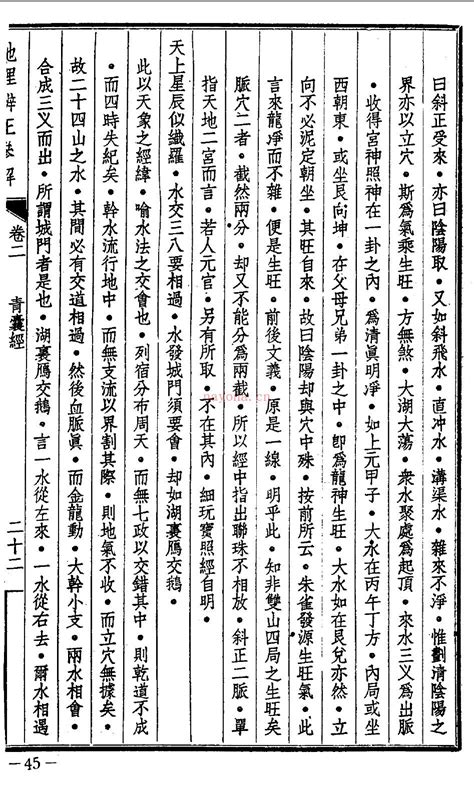 曰斜正受來。亦曰陰陽取。又如斜飛水。直冲水。溝渠水。雜來不淨。惟劃清陰陽之
界亦以立穴。斯爲氣乘生旺。方無煞。大湖大蕩。衆水聚處爲起頂。來水三义爲出脈
。收得宮神照神在一卦之內。爲清眞明淨。如上元甲子。大水在丙午丁方。內局或坐
西朝東。或坐艮向坤。在父母兄弟一卦之中。卽爲龍神生旺。大水如在艮兌亦然。立
向不必泥定朝坐。其旺自來。故曰陰陽却與穴中殊。按前所云。朱雀發源生旺氣。此
言來龍凈而不雜。便是生旺。前後文義。原是一線。明乎此。知非雙山四局之生旺矣
脈穴二者。截然兩分。却又不能分爲兩截。所以經中指出聯珠不相放。斜正二脈。單
指天地二宮而言。若人元官。另有所取。不在其內。細玩寶照經自明。
天上星辰似織羅。水交三八要相過。水發城門須要會。却如湖裏鴈交鵝。
此以天象之經緯。喻水法之交會也。列宿分布周天。而無七政以交錯其中。則乾道不成
。而四時失紀矣。幹水流行地中。而無支流以界割其際。則地氣不收。而立穴無據矣。
故二十四山之水。其間必有交道相過。然後血脈眞。而金龍動。大幹小支。兩水相會。
合成三义而出。所謂城門者是也。湖裏鴈交鵝。言一水從左來。一水從右去。爾水相遇
地理辨正參解
卷二
青囊經
二十二
—45—
nayona.cn